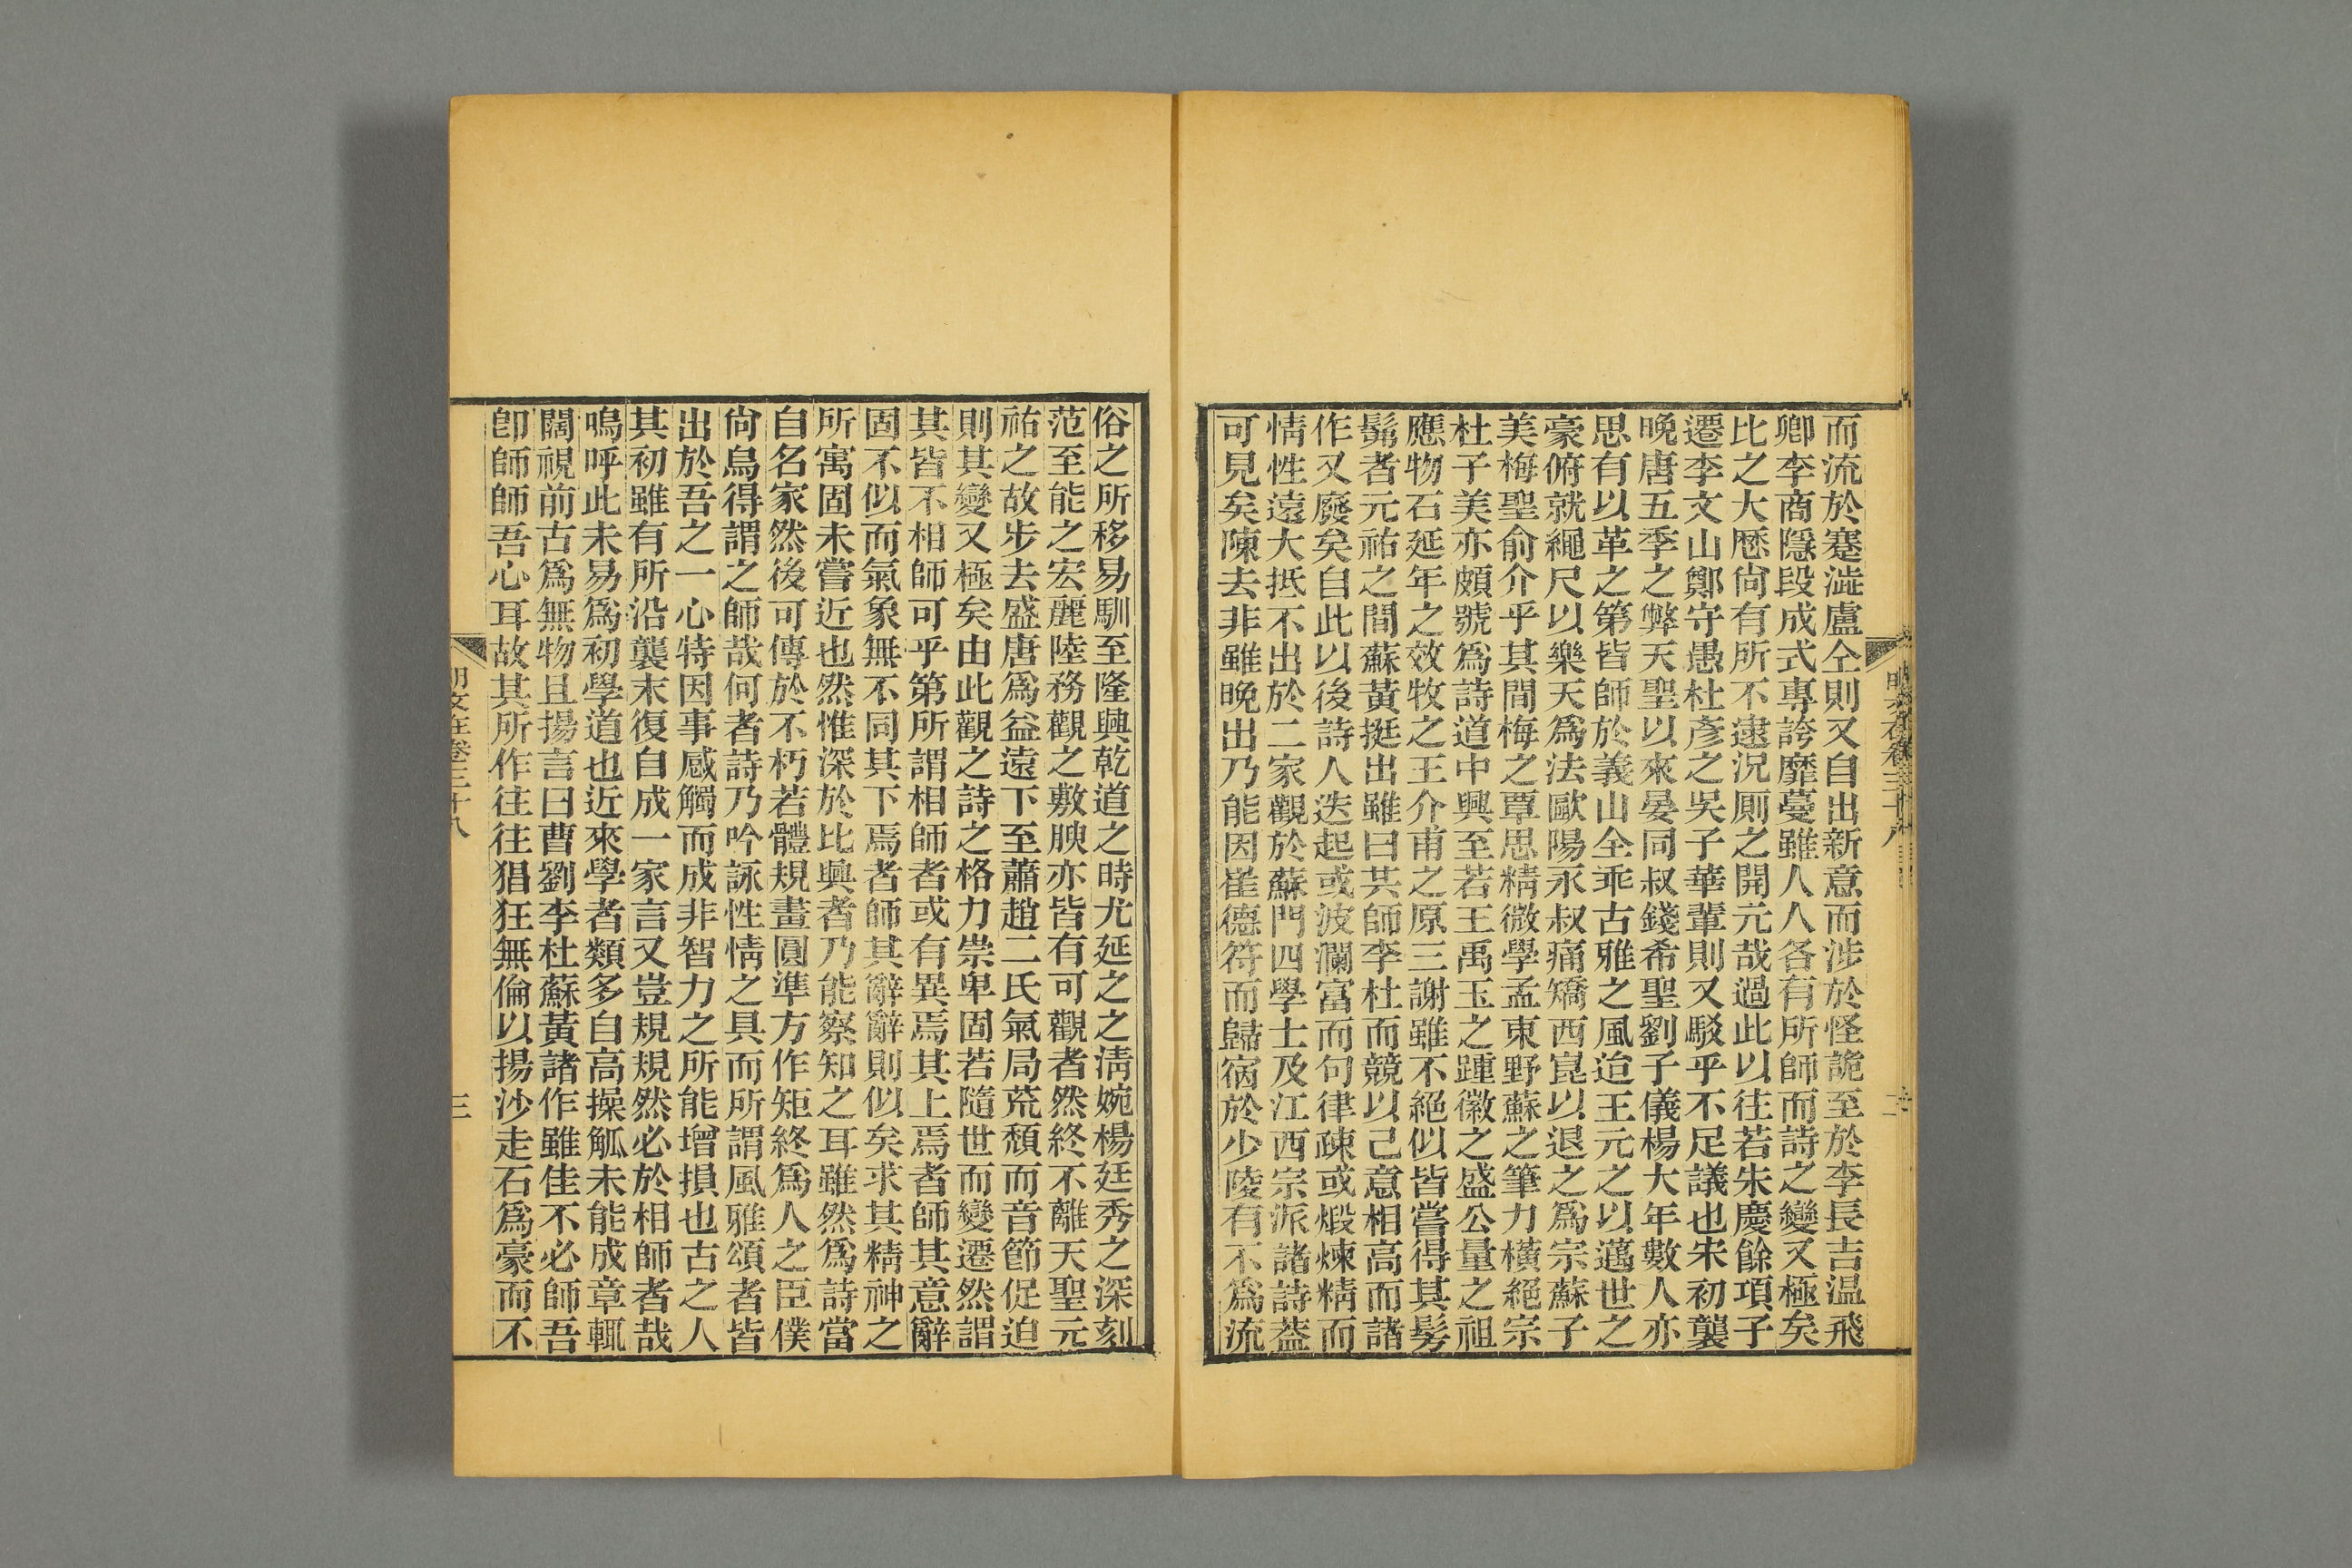 而流於蹇澁盧仝則又自出新意而涉於怪詭至於李長吉温飛
卿李商隱段成式專誇靡蔓雖人人各有所師而詩之變又極矣
比之大厯尙有所不逮況厠之開元哉過此以往若朱慶餘項子
遷李文山鄭守愚杜彥之吳子華輩則又駁乎不足議也宋初襲
晚唐五季之弊天聖以來晏同叔錢希聖劉子儀楊大年數人亦
思有以革之第皆師於義山全乖古雅之風迨王元之以邁世之
豪俯就繩尺以樂天爲法歐陽永叔痛矯西崑以退之爲宗蘇子
美梅聖俞介乎其間梅之覃思精微學孟東野蘇之筆力橫絕宗
杜子美亦頗號爲詩道中興至若王禹玉之踵徽之盛公量之祖
應物石延年之效牧之王介甫之原三謝雖不絕似皆嘗得其髣
髴者元祐之間蘇黃挺出雖曰共師李杜而競以己意相高而諸
作又廢矣自此以後詩人迭起或波瀾富而句律疎或煅煉精而
情性遠大抵不出於二家觀於蘇門四學士及江西宗派諸詩葢
可見矣陳去非雖晚出乃能因崔德符而歸宿於少陵有不爲流
明文在卷三十八
二
俗之所移易馴至隆興乾道之時尤延之之淸婉楊廷秀之深刻
范至能之宏麗陸務觀之敷腴亦皆有可觀者然終不離天聖元
祐之故步去盛唐爲益遠下至蕭趙二氏氣局荒頹而音節促迫
則其變又極矣由此觀之詩之格力崇卑固若隨世而變遷然謂
其皆不相師可乎第所謂相師者或有異焉其上焉者師其意辭
固不似而氣象無不同其下焉者師其辭辭則似矣求其精神之
所寓固未嘗近也然惟深於比興者乃能察知之耳雖然爲詩當
自名家然後可傳於不朽若體規畫圓準方作矩終爲人之臣僕
尙烏得謂之師哉何者詩乃吟詠性情之具而所謂風雅頌者皆
出於吾之一心特因事感觸而成非智力之所能增損也古之人
其初雖有所沿襲末復自成一家言又豈規規然必於相師者哉
嗚呼此未易爲初學道也近來學者類多自高操觚未能成章輒
闊視前古爲無物且揚言曰曹劉李杜蘇黃諸作雖佳不必師吾
卽師師吾心耳故其所作往往猖狂無倫以揚沙走石爲豪而不
明文在卷三十八
三